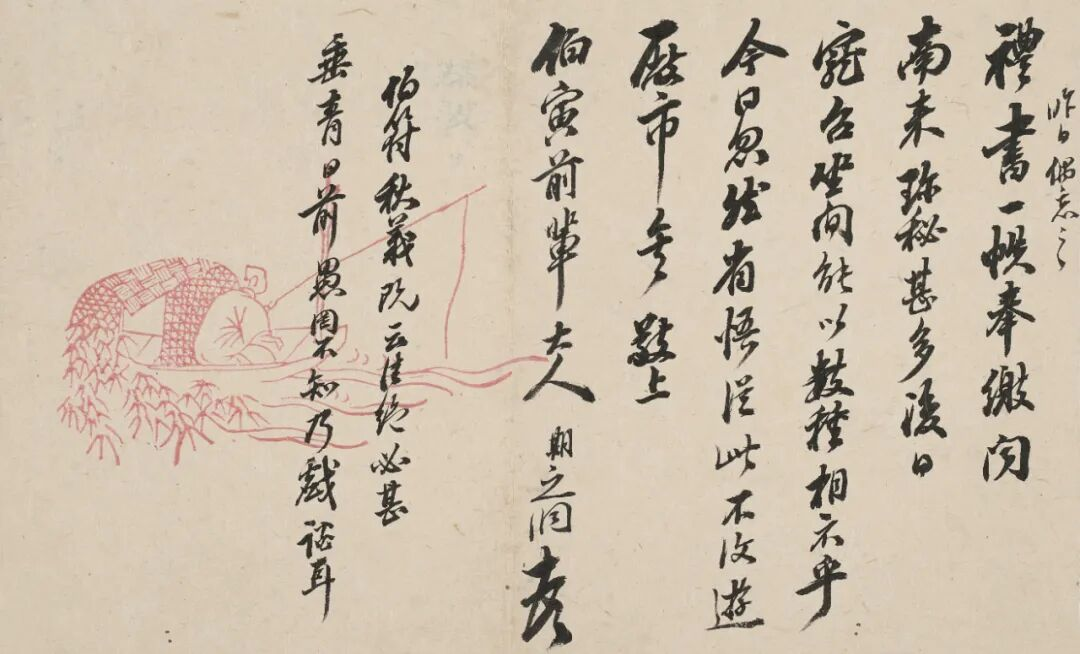 昨日偶忘之
禮書一帙奉繳聞
南来珍秘甚多後日
寵召坐間能以數種相示乎
今日忽然省悟從此不復遊
廠市矣 敬上
伯寅前輩大人 期之洞
伯符秋羲既云佳絶必甚
垂青日前愚罔不知乃戲談耳